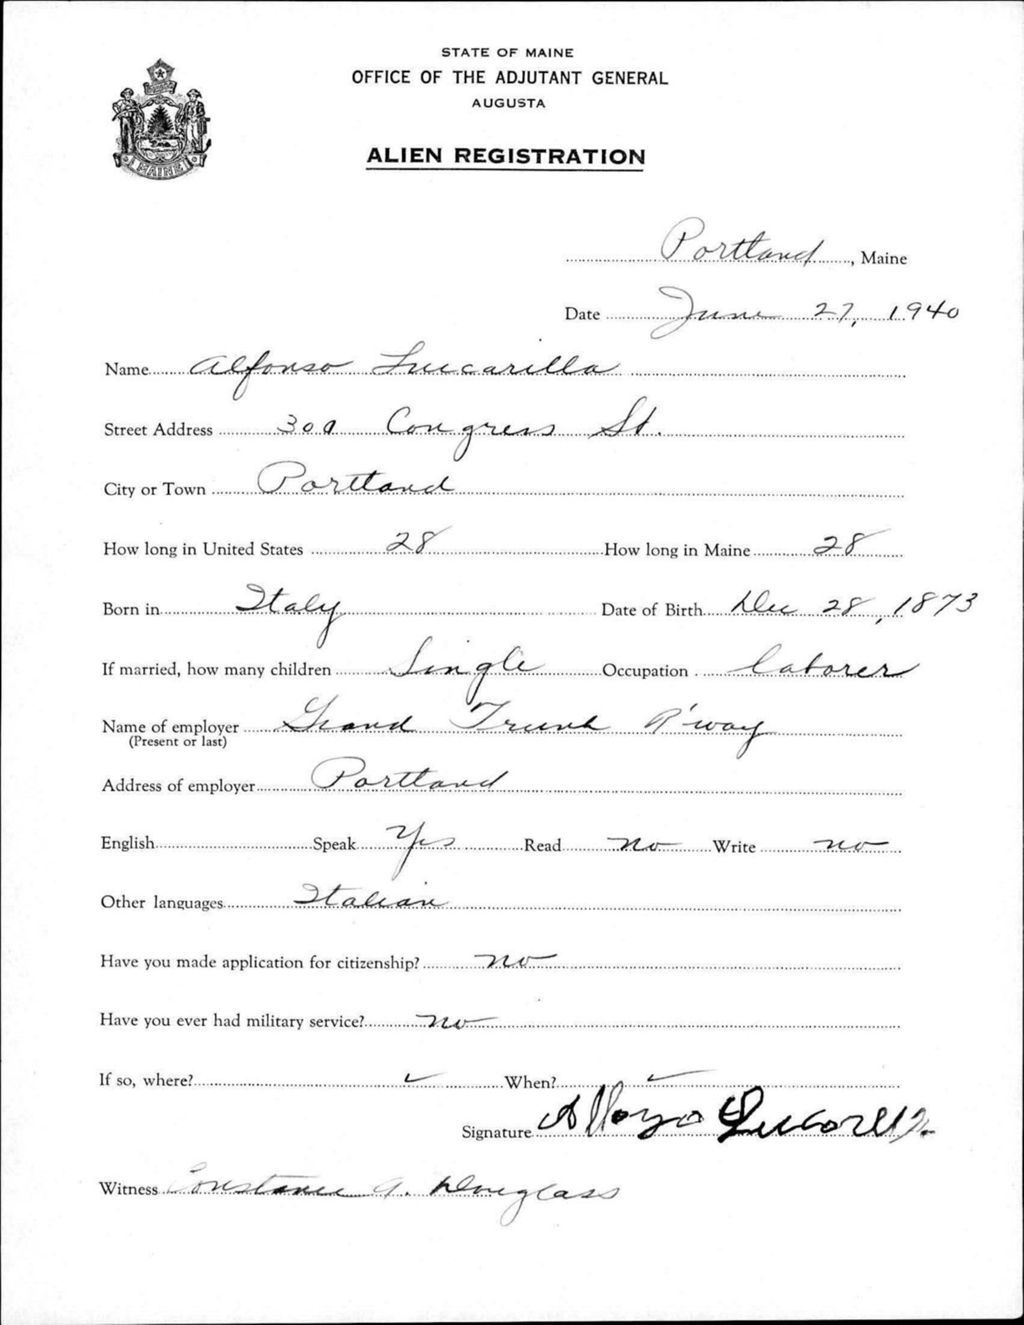 STATE OF MAINE
OFFICE OF THE ADJUTANT GENERAL
AUGUSTA
ALIEN REGISTRATION
MAINE
Portland, Maine
Date June 27, 1940
Name Alfonso Luccarilla
Street Address Congress St.
City or Town Portland
How long in United States 28 How long in Maine 28
Born in Italy Date of Birth Dec 28, 1873
If married, how many children Single Occupation laborer
Name of employer Grand Trunk R'way
(Present or last)
Address of employer Portland
English Speak Yes Read No Write No
Other languages Italian
Have you made application for citizenship? No
Have you ever had military service? No
If so, where? ✓ When? ✓
Signature
Witness Constance A. Douglass